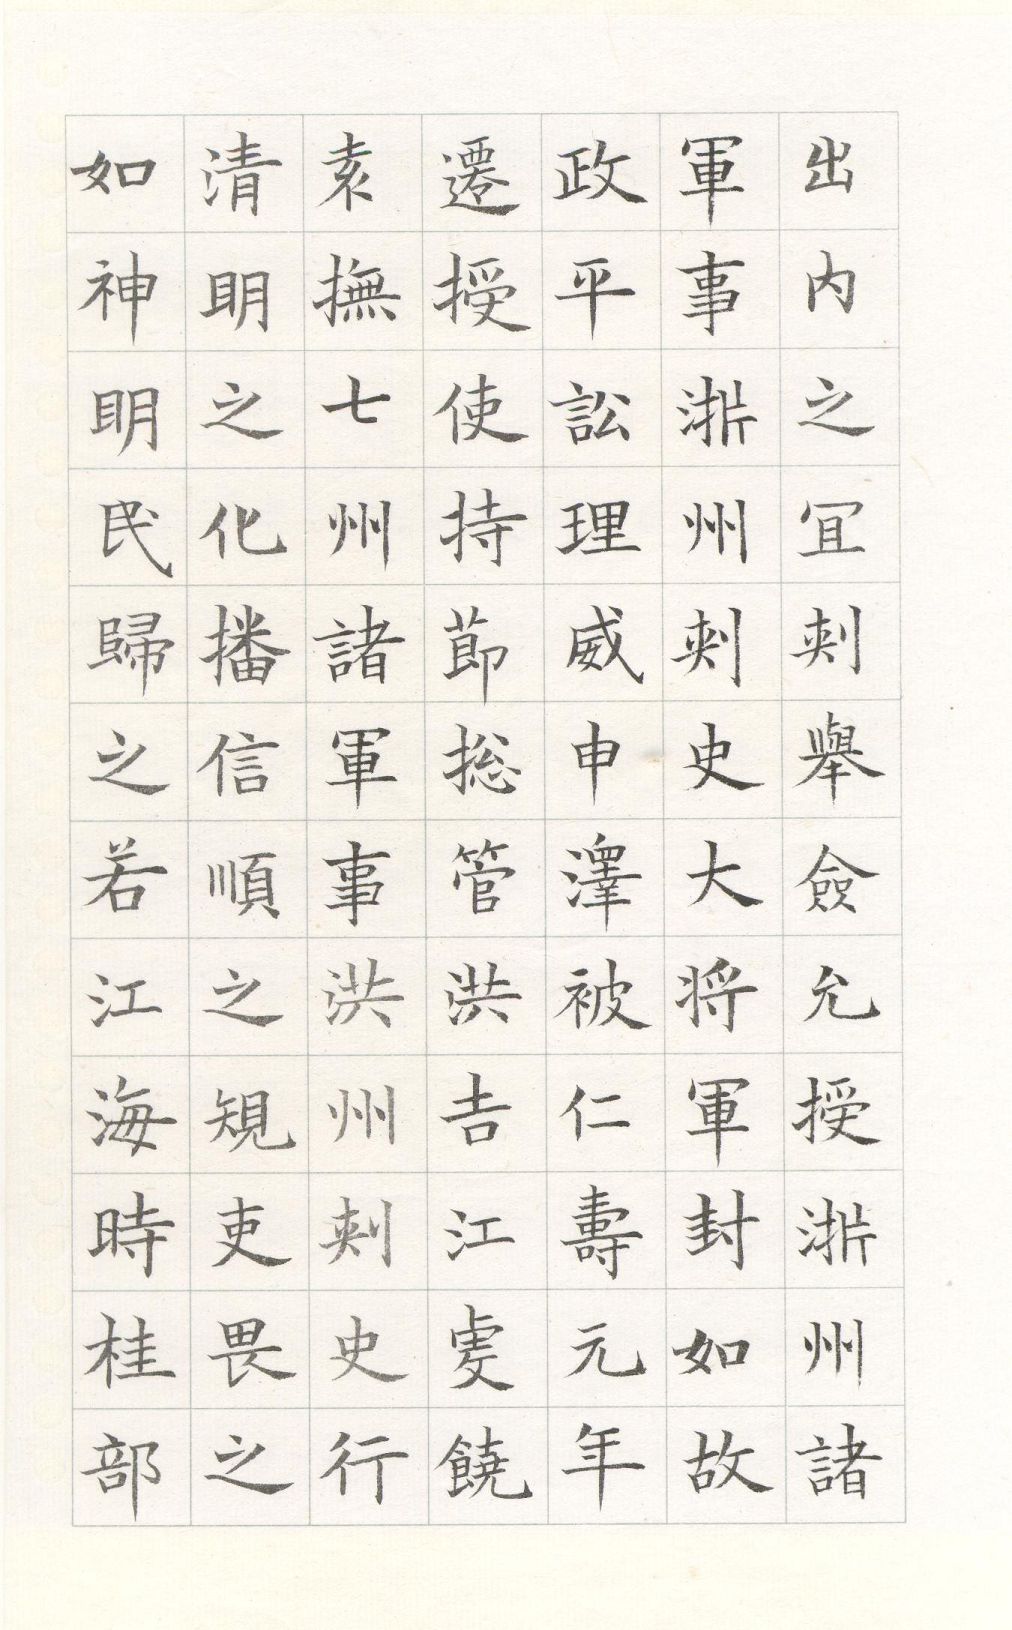 出内之冝刾舉僉允授浙州諸
軍事浙州刾史大将軍封如故
政平訟理威申澤被仁壽元年
遷授使持莭捴管洪吉江虔饒
袁撫七州諸軍事洪州刾史行
清明之化播信順之規吏畏之
如神明民歸之若江海時桂部